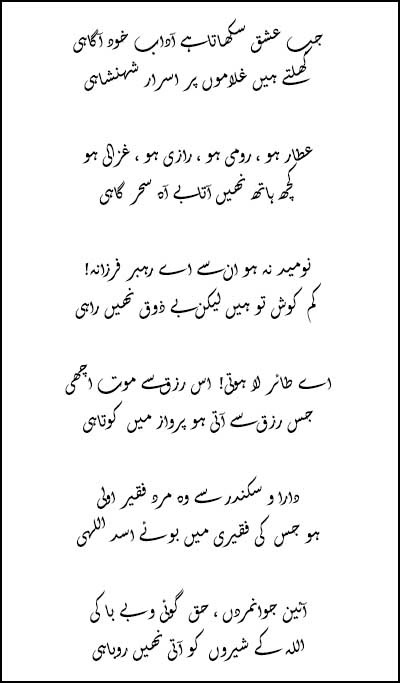 جب عشق سکھاتا ہے آداب خود آگاہی
کھلتے ہیں غلاموں پر اسرار شہنشاہی
عطار ہو ، رومی ہو ، رازی ہو ، غزالی ہو
کچھ ہاتھ نہیں آتا بے آہ سحر گاہی
نومید نہ ہو ان سے اے رہبر فرزانہ!
کم کوش تو ہیں لیکن بے ذوق نہیں راہی
اے طائر لا ہوتی! اس رزق سے موت اچھی
جس رزق سے آتی ہو پرواز میں کوتاہی
دارا و سکندر سے وہ مرد فقیر اولی
ہو جس کی فقیری میں بوئے اسد اللہی
آئین جوانمرداں ، حق گوئی و بے باکی
اللہ کے شیروں کو آتی نہیں روباہی